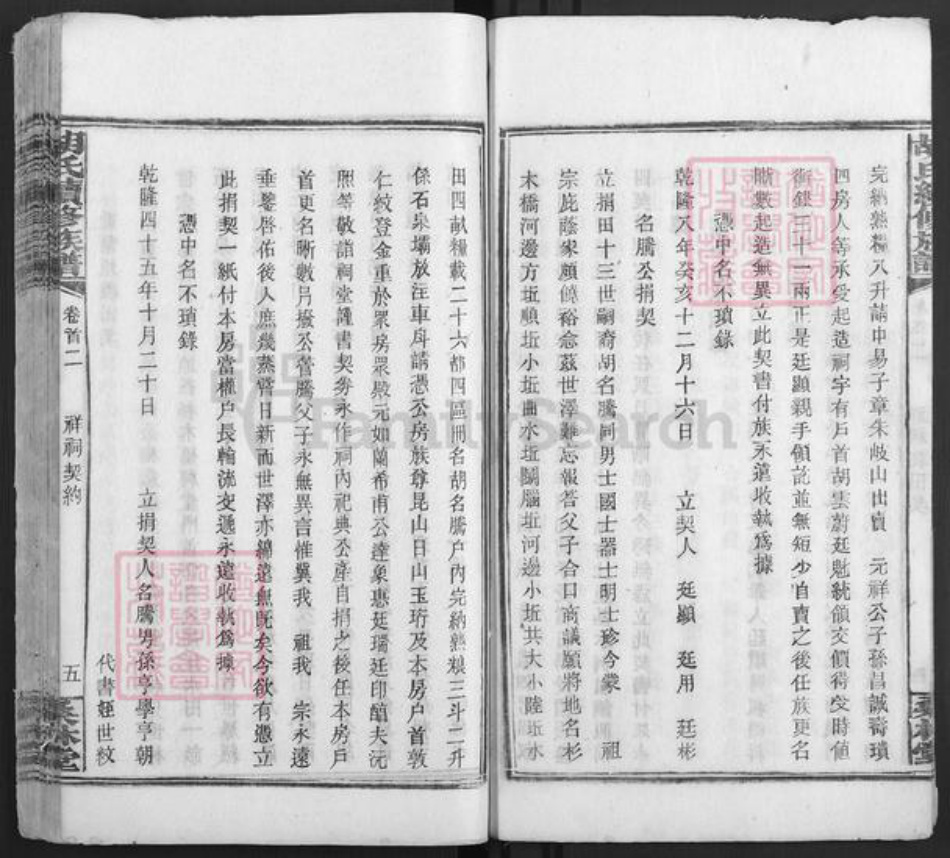 完納熟糧八升請中易子章朱岐山出賣 元祥公子孫昌誠壽璸
四房人等承受起造祠宇有戶首胡雲蔚廷魁統領交價得受時値
銀三十一兩正是廷顯親手領訖並無短少自賣之後任族更名
起造無異立此契書付族永遠收執爲據
憑中名不瑣錄
乾隆八年癸亥十二月十六日 立契人 廷顯 廷用 廷彬
名騰公捐契
立捐田十三世嗣裔胡名騰同男士國士器士明士珍今蒙 祖
宗庇蔭家頗饒裕念茲世澤難忘報答父子合口商議願將地名杉
木橋河邊方坵順坵小坵曲水坵關腦坵河邊小坵共大小陸坵水
田四畝糧載二十六都四區冊名胡名騰戶內完納熟粮三斗二升
係石泉壩放注車戽請憑公房族尊昆山日山玉珩及本房戶首敦
仁紋登金重於眾房眾殿元如蘭希甫公達象惠廷瑞廷印醕夫沅
照等敬詣祠堂謹書契券永作祠內祀典公產自捐之後任本房戶
首更名晰數另撥公管騰父子永無異言惟冀我 祖我 宗永遠
垂鑒啓佑後人庶幾蒸嘗日新而世澤亦綿遠無旣矣今欲有憑立
此捐契一紙付本房當權戶長輪流交遞永遠收執爲據
憑中名不瑣錄
乾隆四十五年十月二十日 立捐契人名騰男孫亨學亨朝
代書姪世紋
胡氏續修族譜 卷首二 祥祠契約 五
胡氏續修族譜
FamilySearch